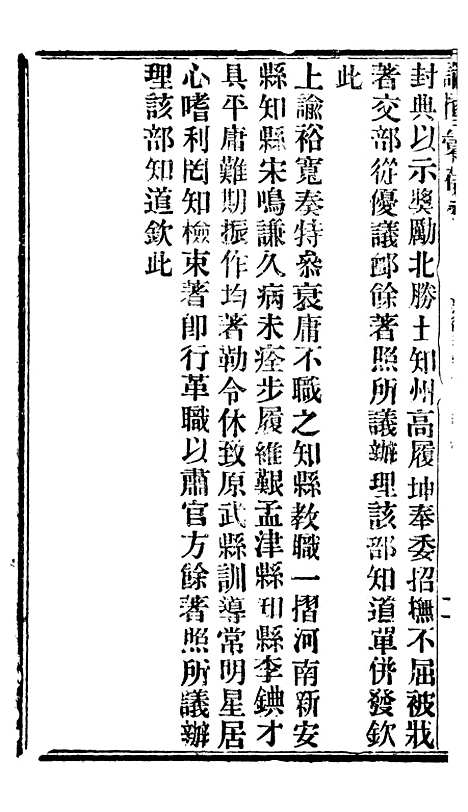 封典以示獎勵北勝土知州高履坤奉委招撫不屈被戕
著交部從優議卹餘著照所議辦理該部知道單併發欽
此
上諭裕寬奏特叅衰庸不職之知縣教職一摺河南新安
縣知縣宋鳴謙久病未痊步履維艱孟津縣知縣李錪才
具平庸難期振作均著勒令休致原武縣訓導常明星居
心嗜利罔知檢束著卽行革職以肅官方餘著照所議辦
理該部知道欽此